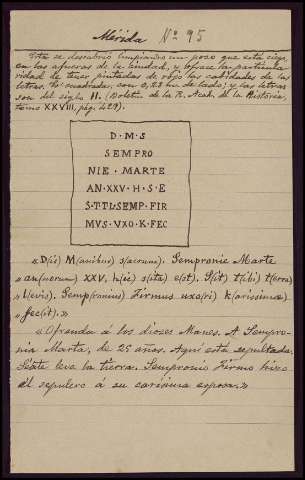 Mérida Nº 95
Esta se descubrió limpiando un pozo que está ciego
en las afueras de la ciudad, y ofrece la particula-
ridad de tener pintadas de rojo las cabidades de las
letras. Es cuadrada, con 0,28 m de lado; y las letras
son del siglo II. (Boletín de la R. Acad. de la Historia,
tomo XXVIII, pág. 429).
D·M·S
SEMPRO
NIE·MARTE
AN·XXV·H·S·E
S·T·TL·SEMP·FIR
MVS·VXO·K·FEC
«D(iis) M(anibus) s(acrum). Sempronie Marte
an(norum) XXV. h(ic) s(ita) e(st). S(it) t(ibi) t(erra)
l(evis). Semp(ronius) Firmus uxo(ri) k(arissimae)
fec(it).»
«Ofrenda á los dioses Manes. A Sempro-
nia Marta, de 25 años. Aquí está sepultada.
Séate leve la tierra. Sempronio Firmo hizo
el sepulcro á su carísima esposa.»